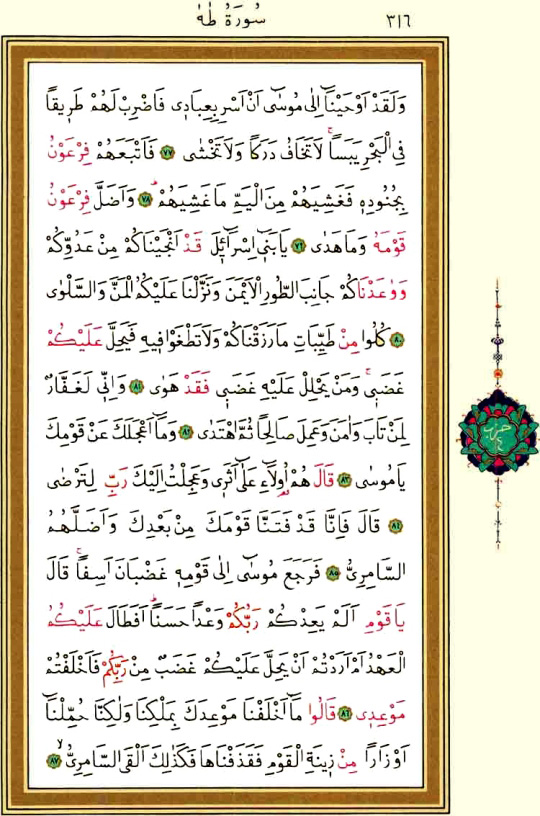 سُورَةُ طٰهٰ ٣١٦
وَلَقَدْ اَوْحَيْنَٓا اِلٰى مُوسٰٓى اَنْ اَسْرِ بِعِبَاد۪ي فَاضْرِبْ لَهُمْ طَر۪يقًا
فِي الْبَحْرِ يَبَسًاۚ لَا تَخَافُ دَرَكًا وَلَا تَخْشٰى ﴿٧٧﴾ فَاَتْبَعَهُمْ فِرْعَوْنُ
بِجُنُودِه۪ فَغَشِيَهُمْ مِنَ الْيَمِّ مَا غَشِيَهُمْۜ ﴿٧٨﴾ وَاَضَلَّ فِرْعَوْنُ
قَوْمَهُ وَمَا هَدٰى ﴿٧٩﴾ يَا بَن۪ٓي اِسْرَٓائ۪لَ قَدْ اَنْجَيْنَاكُمْ مِنْ عَدُوِّكُمْ
وَوٰعَدْنَاكُمْ جَانِبَ الطُّورِ الْاَيْمَنَ وَنَزَّلْنَا عَلَيْكُمُ الْمَنَّ وَالسَّلْوٰى
﴿٨٠﴾ كُلُوا مِنْ طَيِّبَاتِ مَا رَزَقْنَاكُمْ وَلَا تَطْغَوْا ف۪يهِ فَيَحِلَّ عَلَيْكُمْ
غَضَب۪يۚ وَمَنْ يَحْلِلْ عَلَيْهِ غَضَب۪ي فَقَدْ هَوٰى ﴿٨١﴾ وَاِنّ۪ي لَغَفَّارٌ
لِمَنْ تَابَ وَاٰمَنَ وَعَمِلَ صَالِحًا ثُمَّ اهْتَدٰى ﴿٨٢﴾ وَمَٓا اَعْجَلَكَ عَنْ قَوْمِكَ
يَا مُوسٰى ﴿٨٣﴾ قَالَ هُمْ اُو۬لَٓاءِ عَلٰٓى اَثَر۪ي وَعَجِلْتُ اِلَيْكَ رَبِّ لِتَرْضٰى
﴿٨٤﴾ قَالَ فَاِنَّا قَدْ فَتَنَّا قَوْمَكَ مِنْ بَعْدِكَ وَاَضَلَّهُمُ
السَّامِرِيُّ ﴿٨٥﴾ فَرَجَعَ مُوسٰٓى اِلٰى قَوْمِه۪ غَضْبَانَ اَسِفًاۚ قَالَ
يَا قَوْمِ اَلَمْ يَعِدْكُمْ رَبُّكُمْ وَعْدًا حَسَنًاۜ اَفَطَالَ عَلَيْكُمُ
الْعَهْدُ اَمْ اَرَدْتُمْ اَنْ يَحِلَّ عَلَيْكُمْ غَضَبٌ مِنْ رَبِّكُمْ فَاَخْلَفْتُمْ
مَوْعِد۪ي ﴿٨٦﴾ قَالُوا مَٓا اَخْلَفْنَا مَوْعِدَكَ بِمَلْكِنَا وَلٰكِنَّا حُمِّلْنَٓا
اَوْزَارًا مِنْ ز۪ينَةِ الْقَوْمِ فَقَذَفْنَاهَا فَكَذٰلِكَ اَلْقَى السَّامِرِيُّۙ ﴿٨٧﴾
حزب